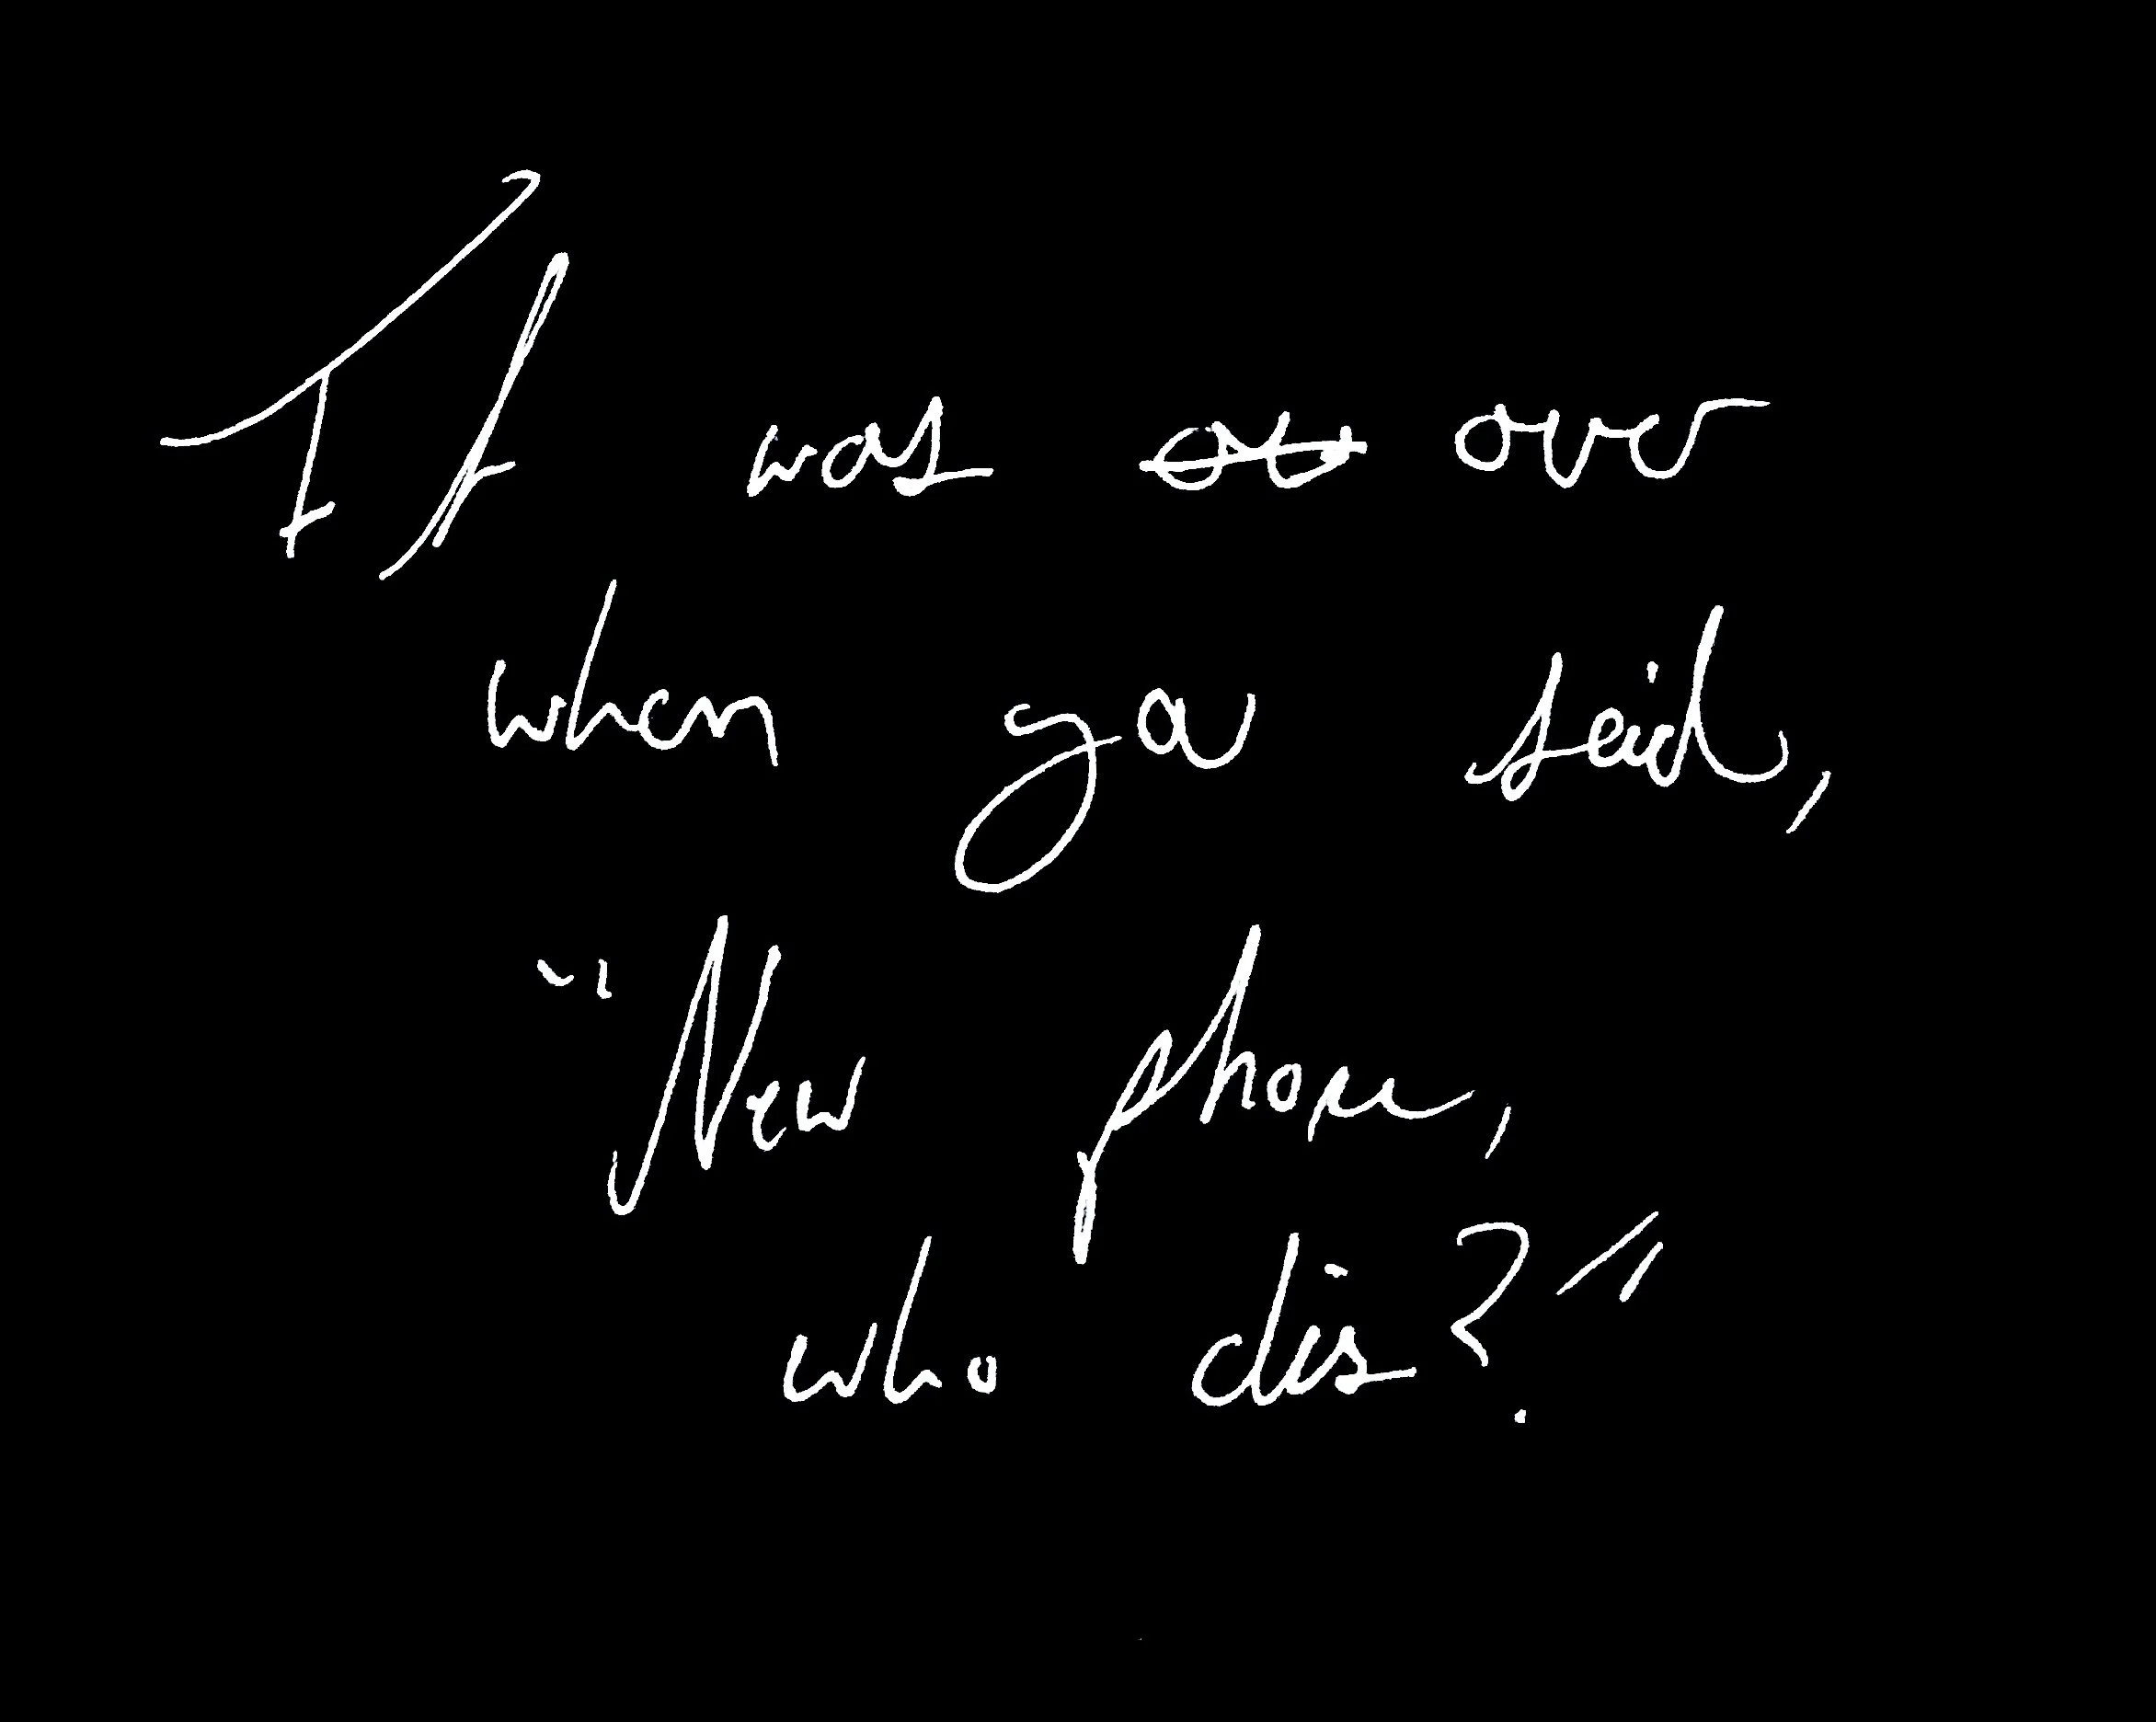 It was over
when you said,
"New phone,
who dis?"